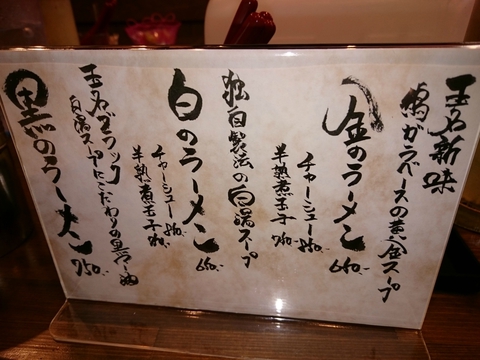 玉名新味
鶏がらベースの黄金スープ
金のラーメン 650.-
チャーシュー 850.-
半熟煮玉子 750.-
独自製法の白湯スープ
白のラーメン 650.-
チャーシュー 850.-
半熟煮玉子 750.-
玉名ブラック
白湯スープにこだわりの黒マー油
黒のラーメン 750.-